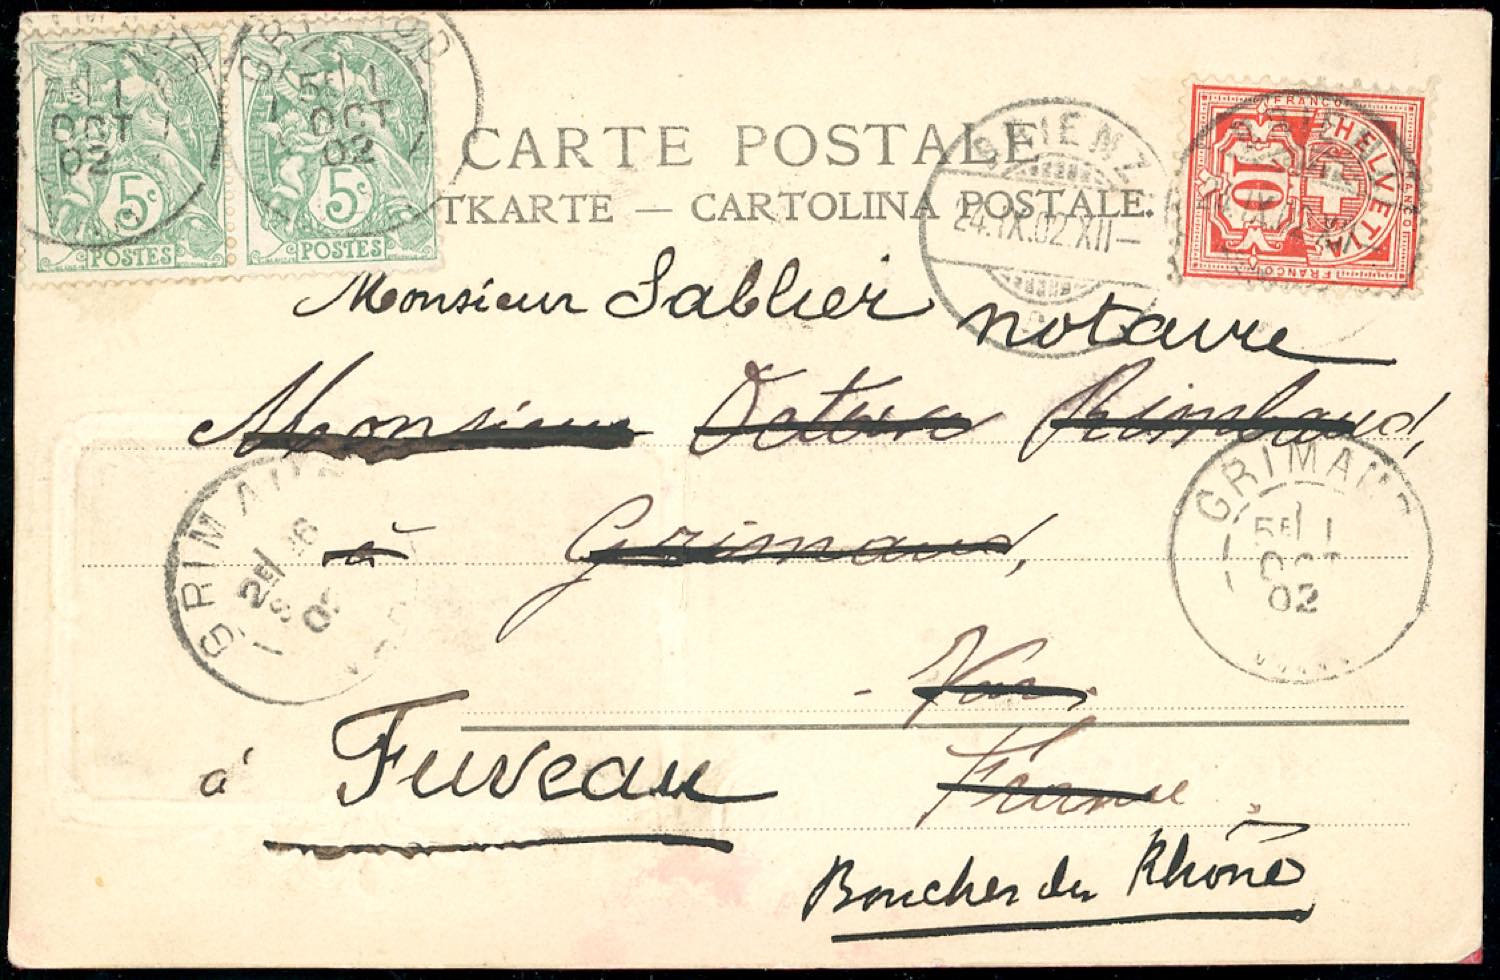 CARTE POSTALE
TKARTE — CARTOLINA POSTALE.
5c
POSTES
5c
POSTES
5E 1
OCT
02
5E 1
OCT
02
BRIENZ
24.IX.02 XII—
FRANCO
HELVETIA
10
FRANCO
FRANCO
Monsieur Sablier notaire
Monsieur Octave Rimbaud,
à Grimaud,
Var.
France
à Fuveau
Bouches du Rhône
GRIMAUD
2E 26
GRIMAUD
5E 1
OCT
02